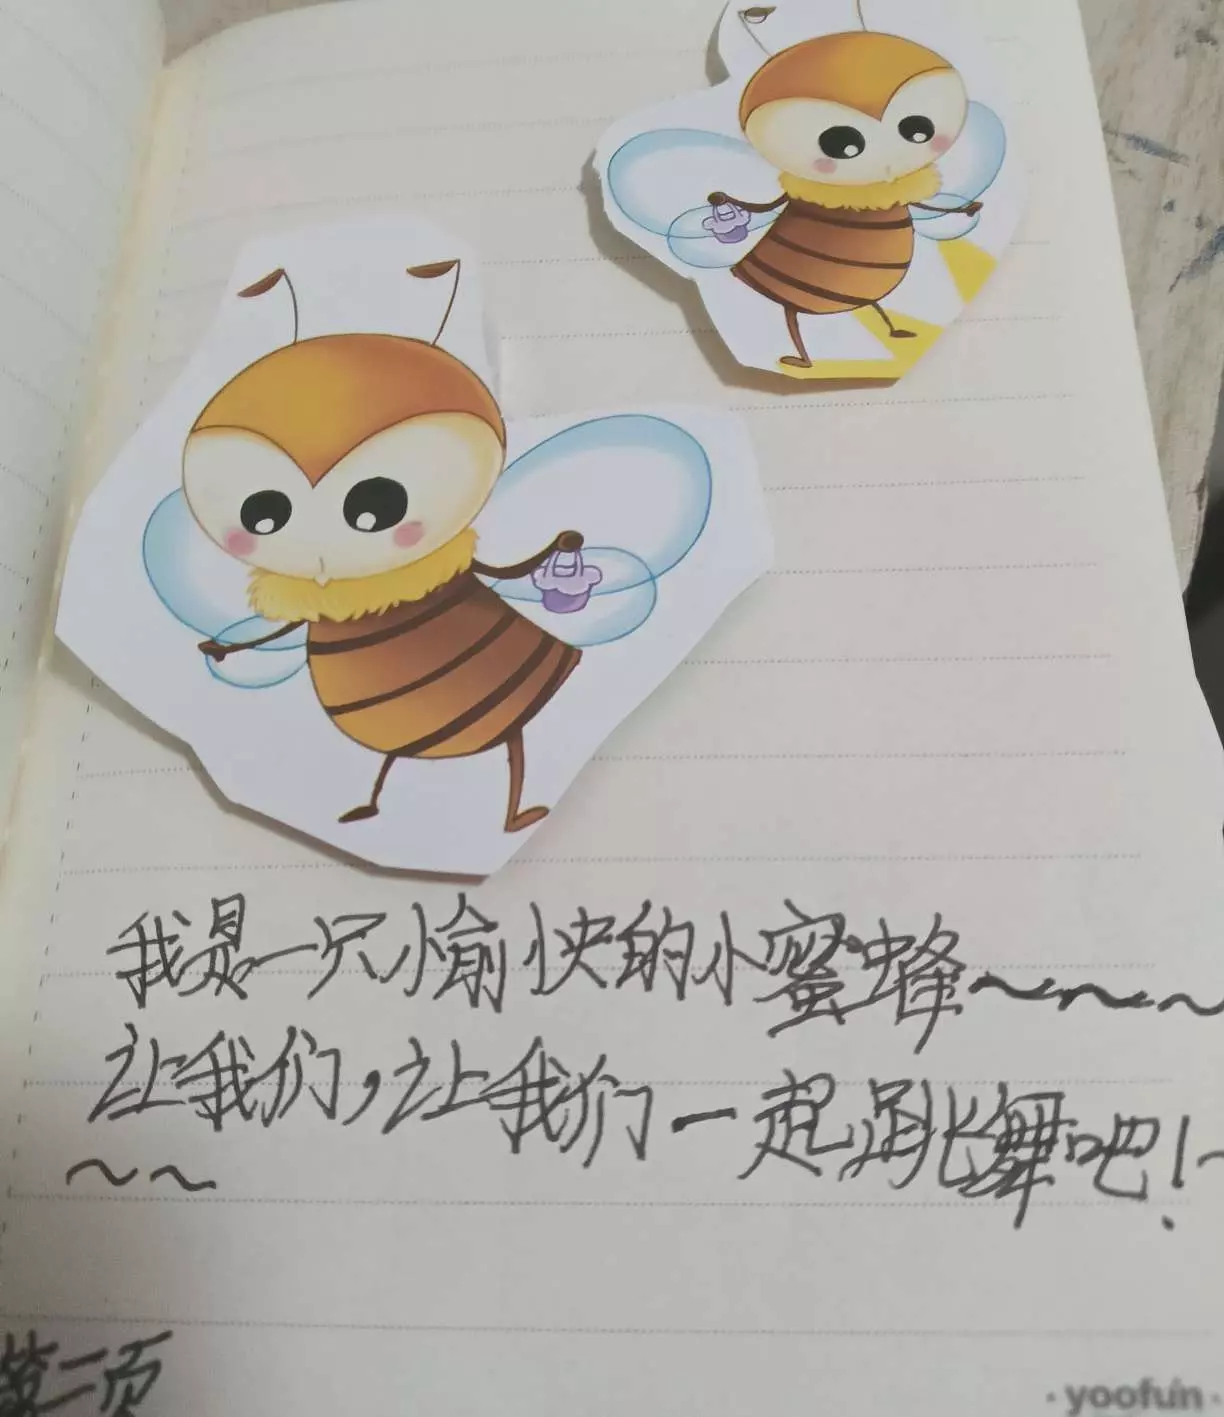 我是一只愉快的小蜜蜂~~~
让我们,让我们一起跳舞吧!~
~~
第二页
·yoofun·